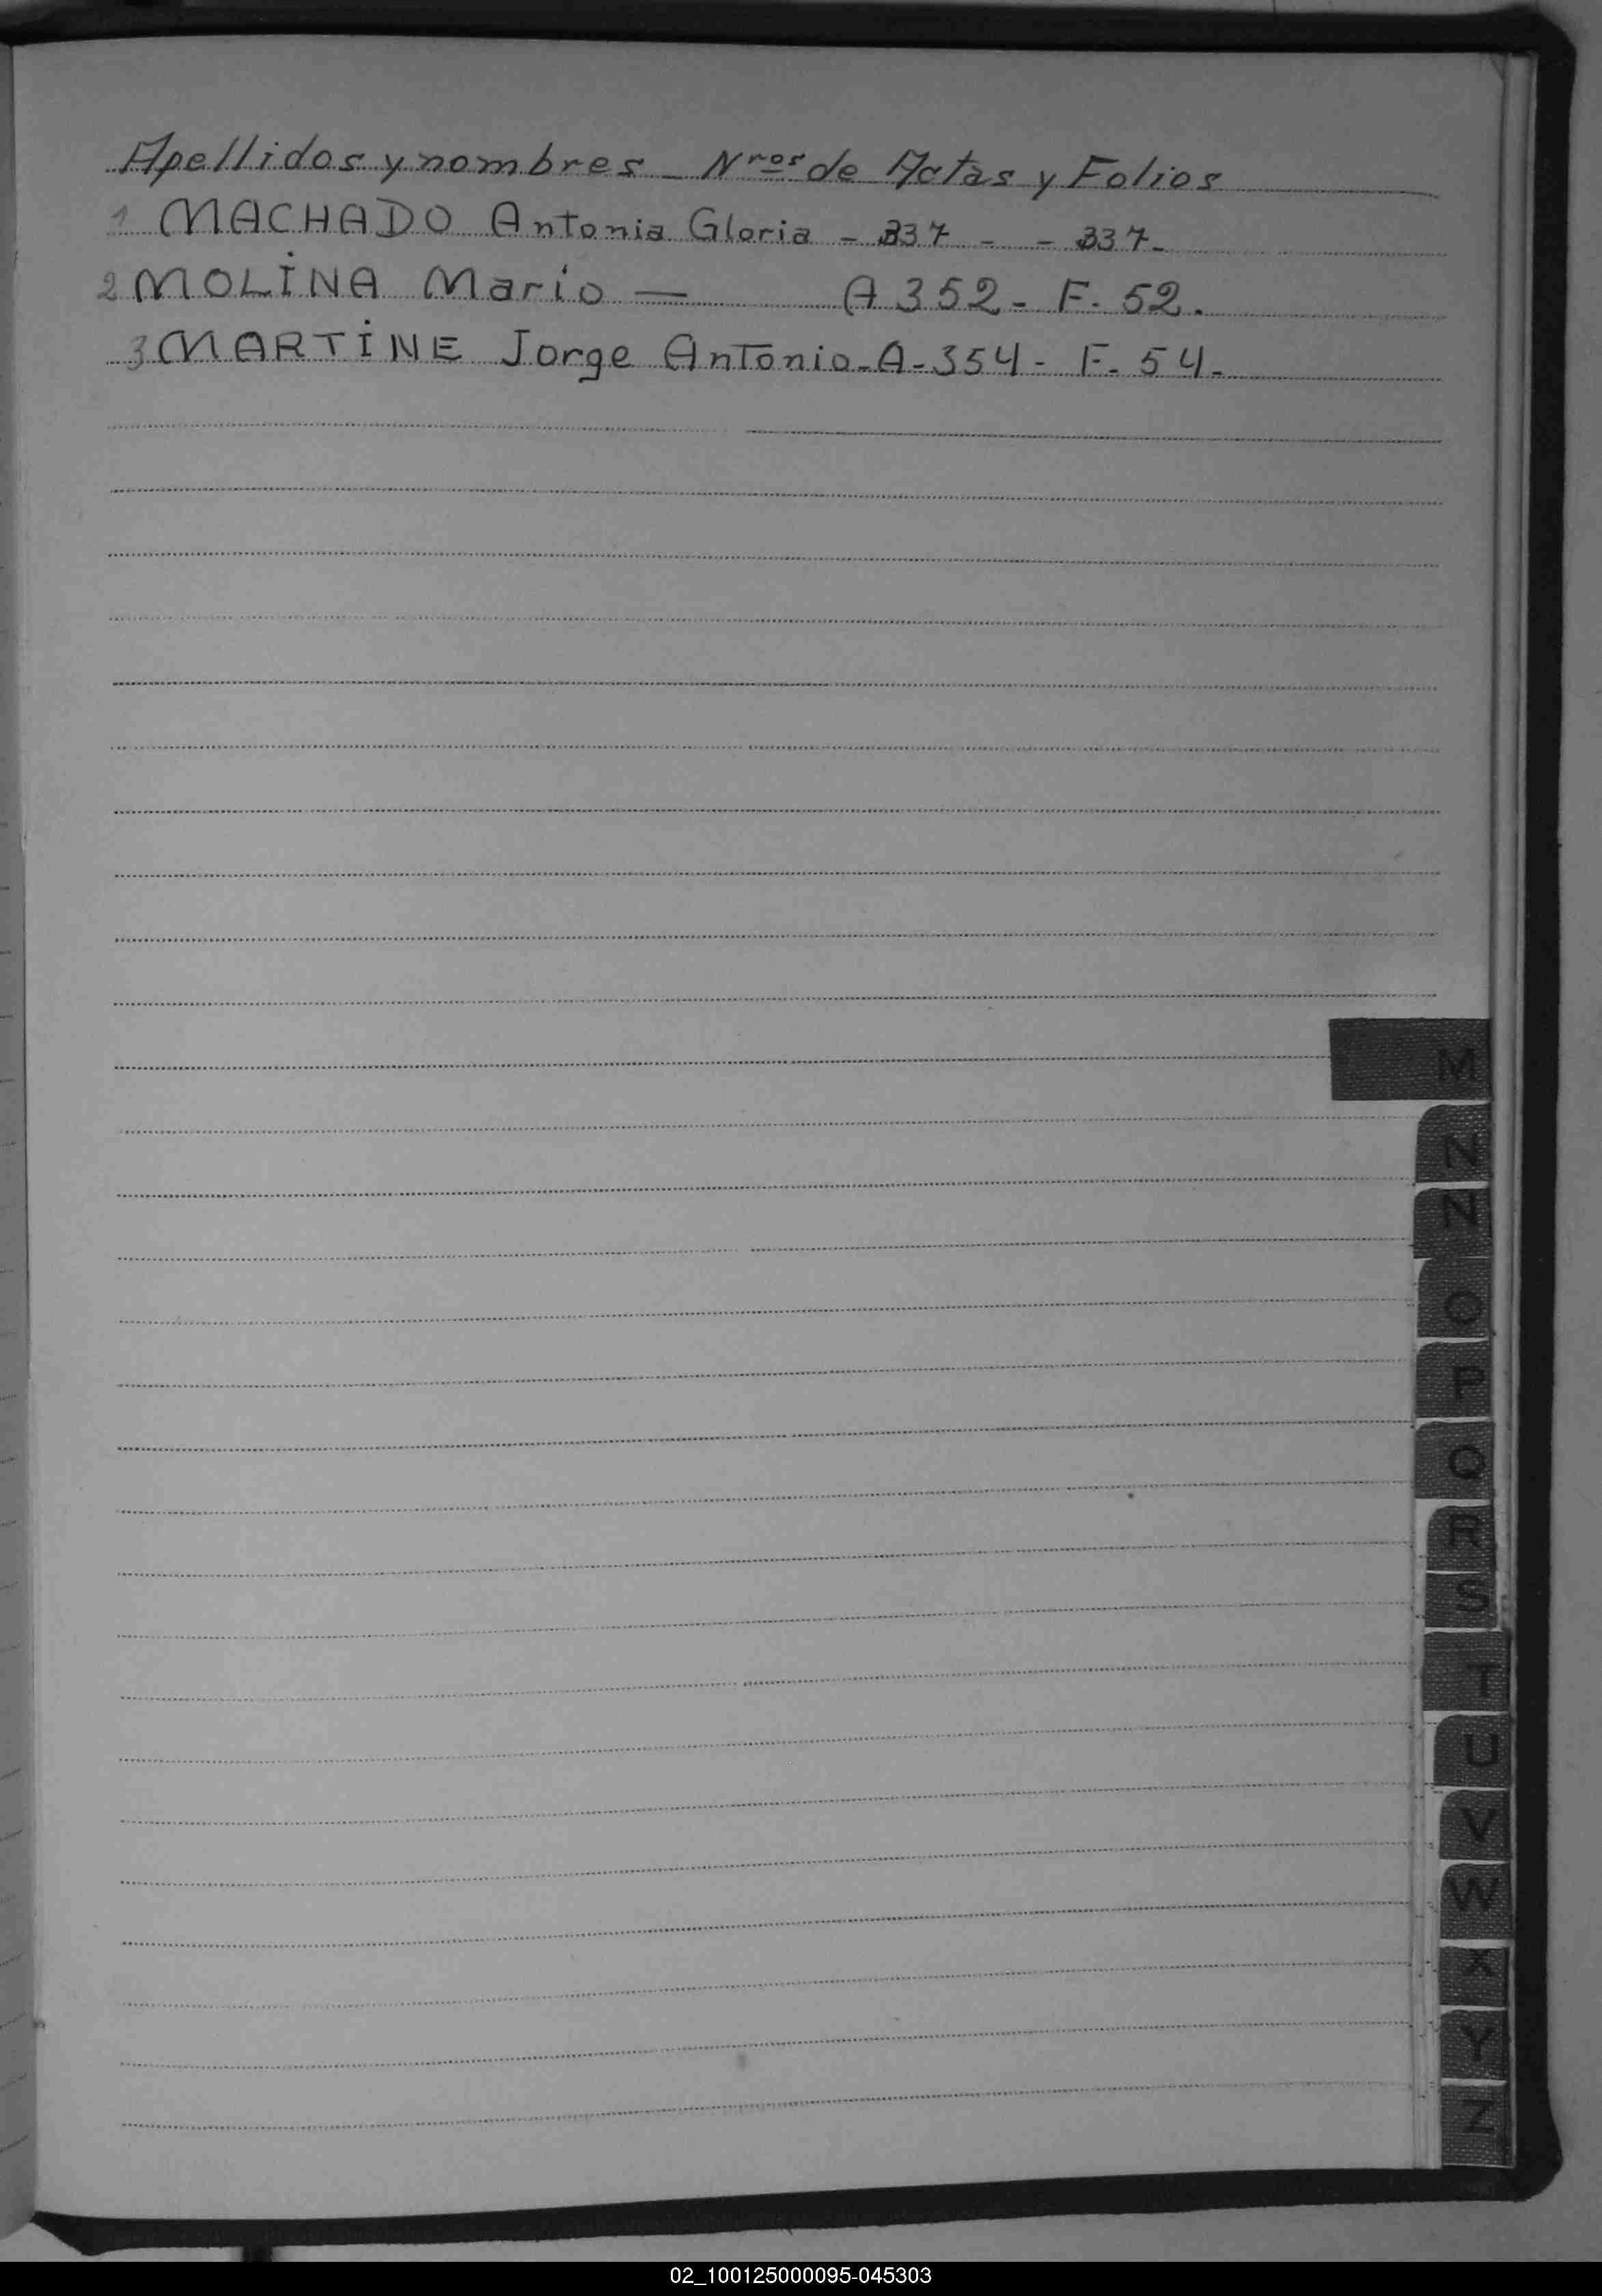 Apellidos y nombres - Nros de Actas y Folios
1 MACHADO Antonia Gloria - 337 - - 337-
2 MOLINA Mario — A 352 - F. 52.
3 MARTINE Jorge Antonio - A - 354 - F. 54 -
M
N
N
O
P
Q
R
S
T
U
V
W
X
Y
Z
02_100125000095-045303